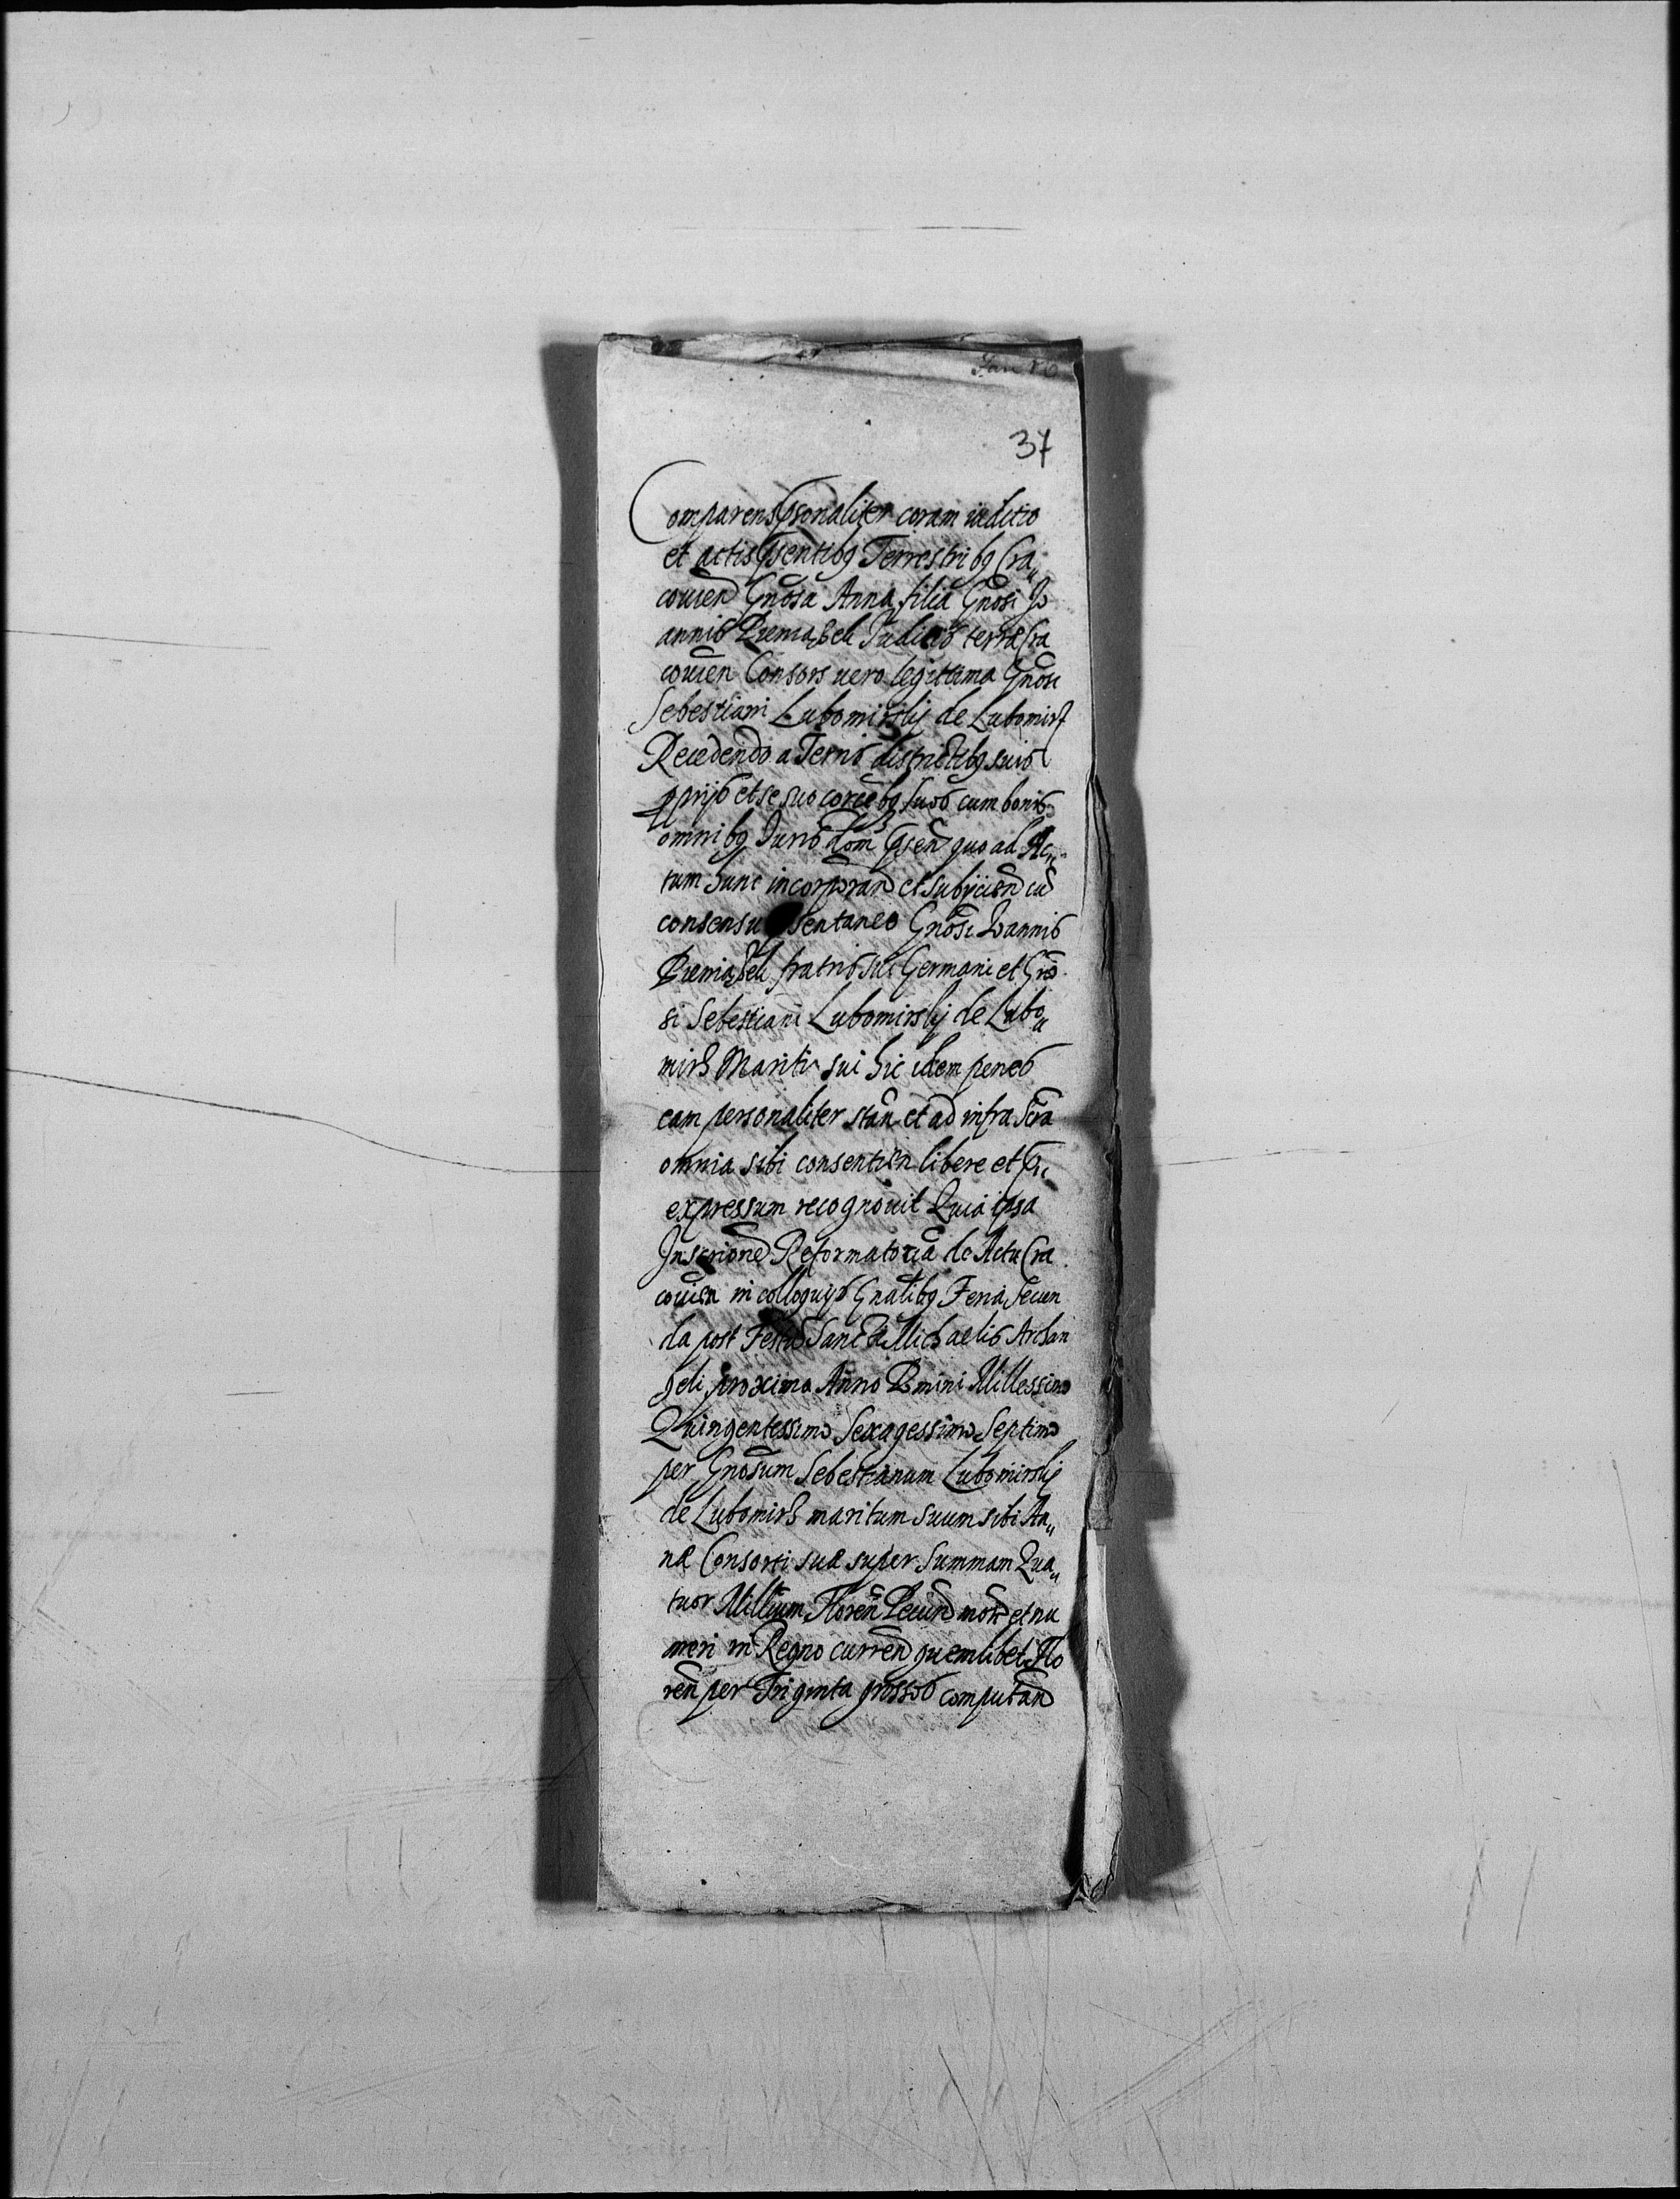 37
Comparens psonaliter coram iuditio
et actis psentibꝫ Terrestribꝫ Cra„
couien Gnosa Anna filia Gnosi Jo
annis Judicis terræ Cra
couien Consors uero legittima Gnosi
Sebestiani Lubomirskÿ de Lubomirz
Recedendo a Terris districtibꝫ suis
pprijs et se suo corcebꝫ suos cum bonis
omnibꝫ Juris psen quo ad Ac„
tum hunc incorporand et subijciend cu
consensu sentaneo Gnosi Joannis
fratris sui Germani et Gno
si Sebestiani Lubomirskÿ de Lubo„
mirz Mariti sui hic idem penes
eam personaliter stan et ad infra Scra
omnia sibi consentien libere et p
expressum recognouit Quia ipsa
Inscrione Reformatoria de Actu Cra
couien in colloquijs Gnalibꝫ Feria Secun
da post Festu Sancti Michaelis Archan
geli proxima Anno Domini Millessimo
Quingentessimo Sexagessimo Septimo
per Gnosum Sebestianum Lubomirskÿ
de Lubomirz maritum suum sibi An„
næ Consorti suæ super Summam Qua„
tuor Millium Floren Pecun mon et nu
meri in Regno curren quemlibet Flo
ren per Triginta grossos computan